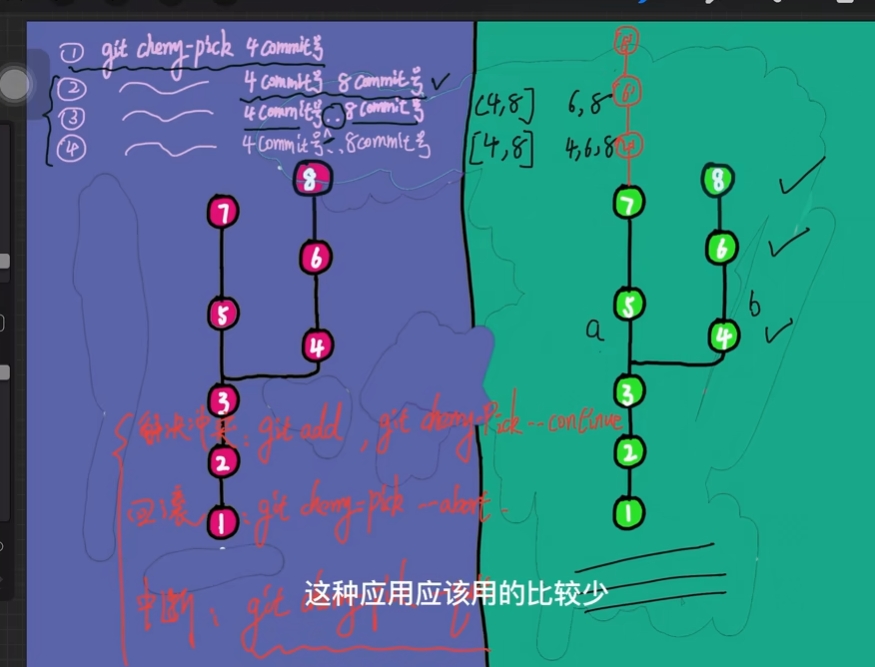 ① git cherry-pick 4 commit号
② 4 commit号 8 commit号
③ 4 commit号..8 commit号
④ 4 commit号^..8 commit号
(4,8] 6,8
[4,8] 4,6,8
8
7
6
5
4
3
2
1
8'
6'
4'
7
8
6
5
4
a
b
3
2
1
解决冲突: git add, git cherry-pick --continue
回滚: git cherry-pick --abort
中断: git cherry-pick
这种应用应该用的比较少